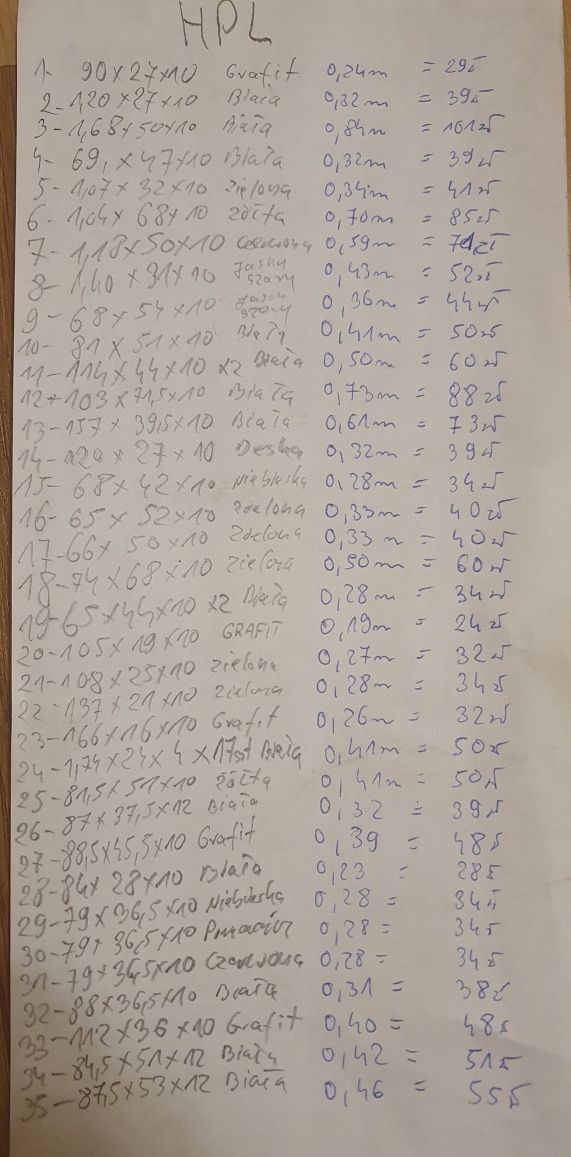 HPL
1- 90x27x10 Grafit 0,24m = 29zł
2-1,20x27x10 Biała 0,32m = 39zł
3-1,68x50x10 Biała 0,84m = 101zł
4- 69,x47x10 Biała 0,32m = 39zł
5- 1,07x32x10 zielona 0,34m = 41zł
6- 1,04x68x10 żółta 0,70m = 85zł
7- 1,18x50x10 czerwona 0,59m = 71zł
8- 1,40x31x10 Jasny szary 0,43m = 52zł
9- 68x54x10 Jasny szary 0,36m = 44zł
10- 81x51x10 Biała 0,41m = 50zł
11-114x44x10 x2 Biała 0,50m = 60zł
12-103x71,5x10 Biała 0,73m = 88zł
13-157x39,5x10 Biała 0,61m = 73zł
14-120x27x10 Deska 0,32m = 39zł
15- 68x42x10 Niebieska 0,28m = 34zł
16- 65x52x10 Zielona 0,33m = 40zł
17-66x50x10 Zielona 0,33m = 40zł
18-74x68x10 zielona 0,50m = 60zł
19-65x44x10 x2 Biała 0,28m = 34zł
20-105x19x10 GRAFIT 0,19m = 24zł
21-108x25x10 zielona 0,27m = 32zł
22-137x21x10 zielona 0,28m = 34zł
23-166x16x10 Grafit 0,26m = 32zł
24-1,74x24x4 x17szt Biała 0,41m = 50zł
25-81,5x51x10 żółta 0,41m = 50zł
26-87x37,5x12 Biała 0,32 = 39zł
27-88,5x45,5x10 Grafit 0,39 = 48zł
28-84x28x10 Biała 0,23 = 28zł
29-79x36,5x10 Niebieska 0,28 = 34zł
30-79x36,5x10 Pomarańcz 0,28 = 34zł
31-79x36,5x10 Czerwona 0,28 = 34zł
32-88x36,5x10 Biała 0,31 = 38zł
33-112x36x10 Grafit 0,40 = 48zł
34-84,5x51x12 Biała 0,42 = 51zł
35-87,5x53x12 Biała 0,46 = 55zł